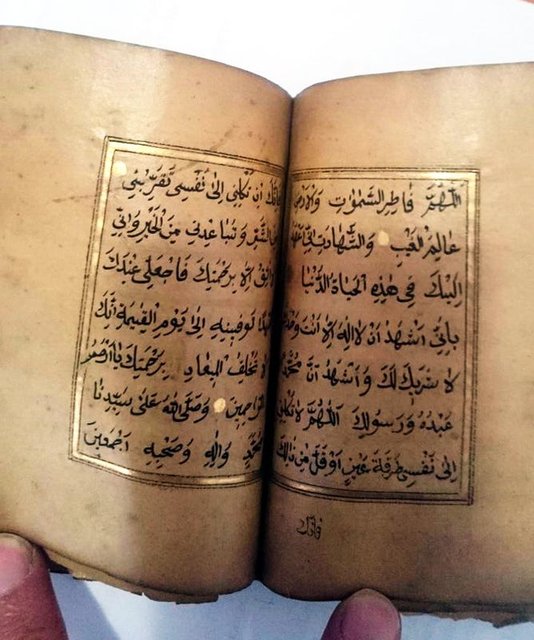 اَللّٰهُمَّ فَاطِرَ السَّمٰوَاتِ وَالْاَرْضِ
عَالِمَ الْغَيْبِ وَالشَّهَادَتِ اِنّٖى اَعْهَدُ
اِلَيْكَ فِى هٰذِهِ الْحَيَاةِ الدُّنْيَا
بِاَنِّى اَشْهَدُ اَنْ لَا اِلٰهَ اِلَّا اَنْتَ وَحْدَكَ
لَا شَرِيكَ لَكَ وَاَشْهَدُ اَنَّ مُحَمَّدًا
عَبْدُكَ وَرَسُولُكَ اَللّٰهُمَّ لَا تَكِلْنِى
اِلٰى نَفْسِى طَرْفَةَ عَيْنٍ اَوْ اَقَلَّ مِنْ ذٰلِكَ
فَاِنَّكَ
فَاِنَّكَ اَنْ تَكِلْنِى اِلٰى نَفْسِى تُقَرِّبْنِى
اِلَى الشَّرِّ وَتُبَاعِدْنِى مِنَ الْخَيْرِ وَاِنِّى
لَا اَثِقُ اِلَّا بِرَحْمَتِكَ فَاجْعَلْ لِى عِنْدَكَ
عَهْدًا تُوَفِّينِهِ اِلٰى يَوْمِ الْقِيٰمَةِ اِنَّكَ
لَا تُخْلِفُ الْمِيعَادَ بِرَحْمَتِكَ يَا اَرْحَمَ
الرَّاحِمِينَ وَصَلَّى اللهُ عَلٰى سَيِّدِنَا
مُحَمَّدٍ وَاٰلِهِ وَصَحْبِهِ اَجْمَعِينَ